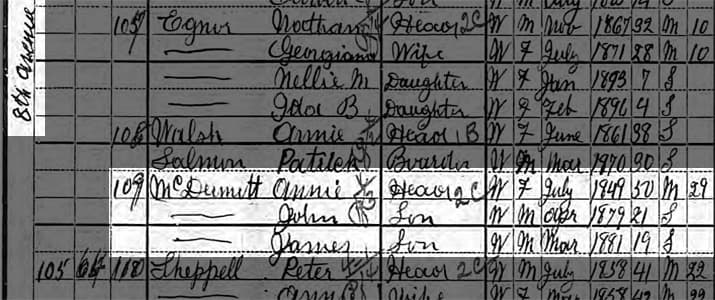 8th avenue
107 Egnor Head 2C W M Nov 1867 32 M 10
Georgiana Wife W F July 1871 28 M 10
Nellie M Daughter W F Jan 1893 7 S
Ida B Daughter W F Feb 1896 4 S
108 Walsh Annie Head 1B W F June 1861 38 S
Salmon Patrick Boarder W M Mar 1870 30 S
109 McDermitt Annie Head 2C W F July 1849 50 M 29
John Son W M 1879 21 S
James Son W M Mar 1881 19 S
105 Sheppell Peter Head 2C W M July 1858 41 M 22
Wife W F 1858